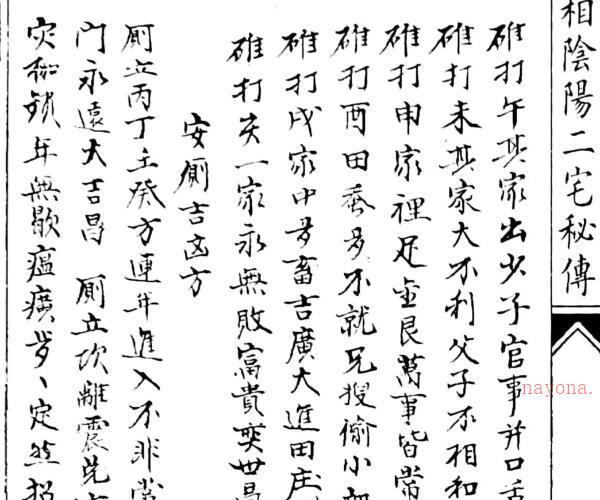 相陰陽二宅秘傳
碓打午其家出少子官事并口舌
碓打未其家大不利父子不相和
碓打申家裡足金艮萬事皆常
碓打酉田蚕多不就兄嫂偷小
碓打戌家中多畜吉廣大進田庄
碓打亥一家永無敗富貴奕世昌
安厠吉凶方
厠立丙丁壬癸方連年進入不非常
門永遠大吉昌 厠立坎離震兌
灾秧鎖年無歇瘟㾠多丶定然招
nayona.